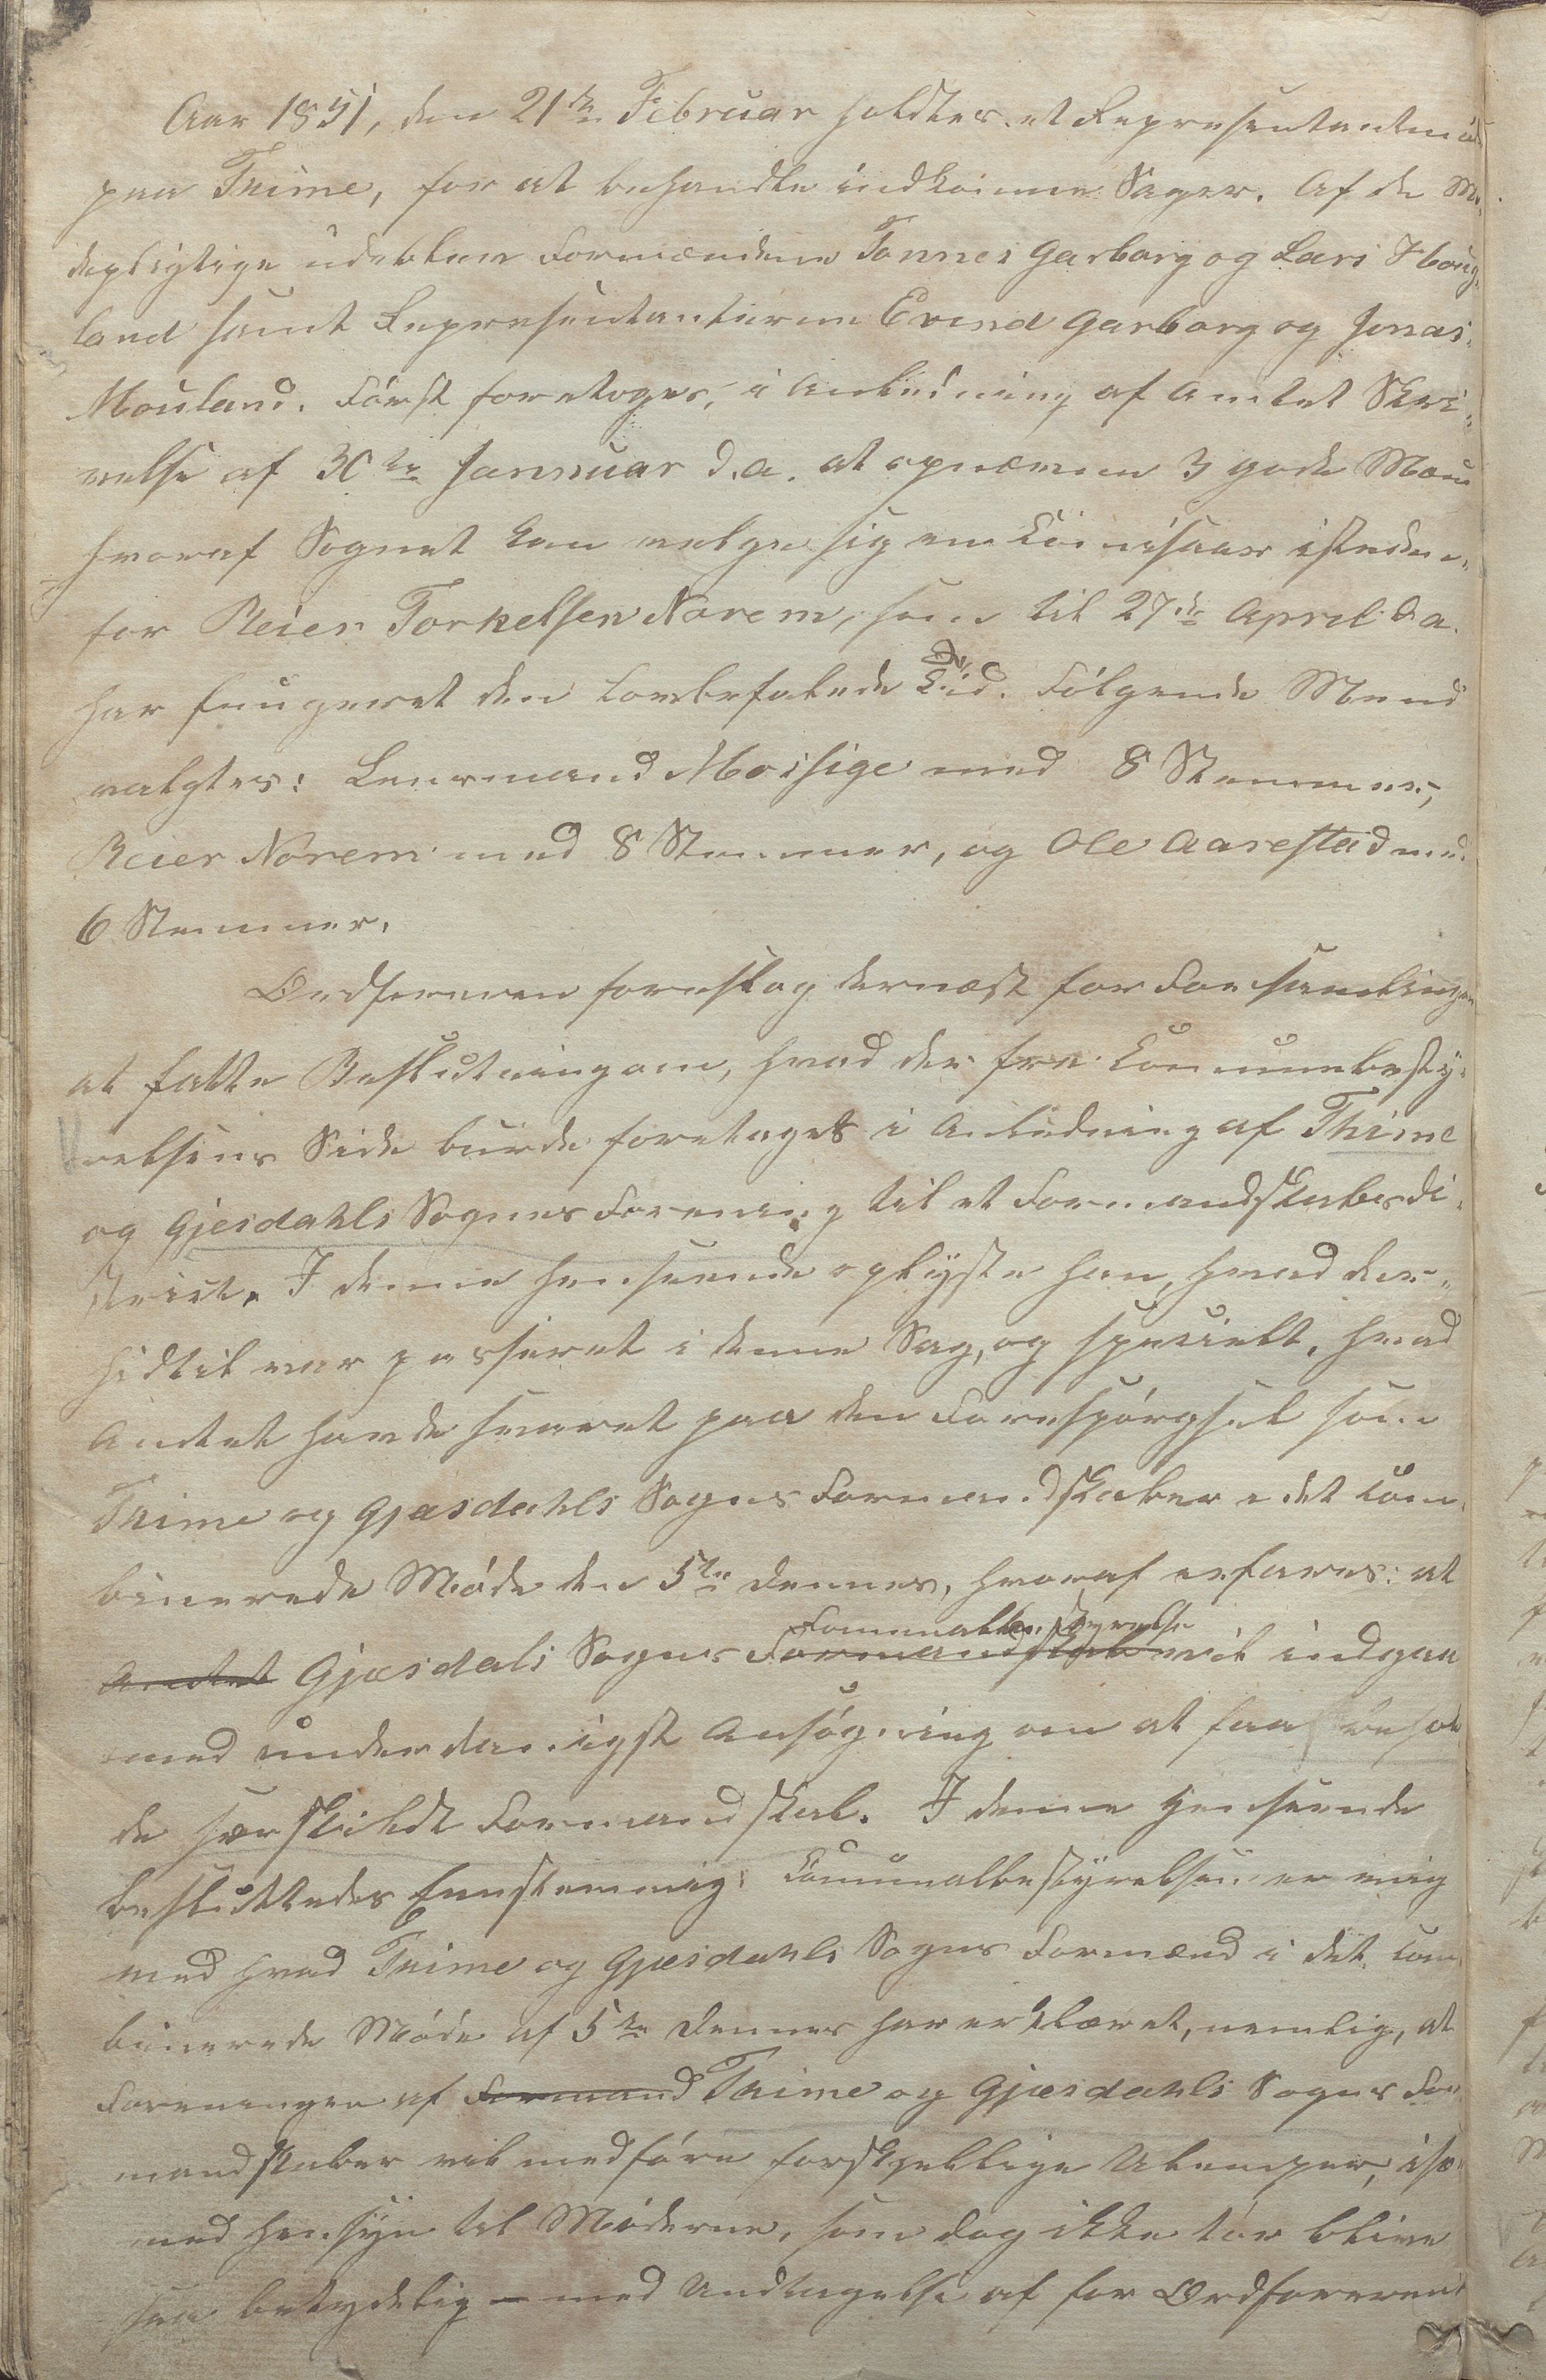 Aar 1851, den 21de Februar holdtes et Repræsentantmö
paa Thime, for at behandle indkomne Sager. Af de Mö-
depligtige udebleve Formændene Tønnes Garborg og Lars Houg-
land samt Repræsentanterne Evind Garborg og Jonas
Mouland. Först foretoges, i Anledning af Amtet Skri-
velse af 30te Januar d.a. at opnævne 3 gode Mænd
hvoraf Sognet kan velge sig en Comisair isteden-
for Reier Torkelsen Norem, som til 27de April d.a.
har fungeret den lovbefalede Tid. Fölgende Mænd
valgtes: Lensmand Moisige med 8 Stemmer,
Reier Norem med 8 Stemmer, og Ole Aarestad med
6 Stemmer.
Ordföreren foreslog dernæst for Forsamlingen
at fatte Beslutning om, hvad der fra Communebesty-
relsens Side burde foretages i Anledning af Thime
og Gjesdahls Sognes Forening til et Formandskabsdi-
strict. I denne Henseende oplyste han, hvad der
hidtil var passeret i denne Sag, og specielt, hvad
Amtet havde svaret paa den Forespörgsel som
Thime og Gjæsdahls Sognes Formandskaber i det com-
binerede Möde den 5te dennes, hvoraf erfares: at
Amtet Gjæsdals Sogns Formandskab Communalbestyrelse vil indgaa
med underdanigst Ansögning om at faa behol-
de særskildt Formandskab. I denne Henseende
besluttedes Eenstemmig: Communalbestyrelsen er enig
med hvad Thime og Gjæsdahls Sognes Formænd i det com-
binerede Möde af 5te dennes har erklæret, nemlig, at
Foreningen af Formand Thime og Gjæsdahls Sognes For-
mandskaber vil medföre forskjellige Ulemper, især
med Hensyn til Möderne, som dog ikke tör blive
saa betydelig – med Undtagelse af for Ordföreren